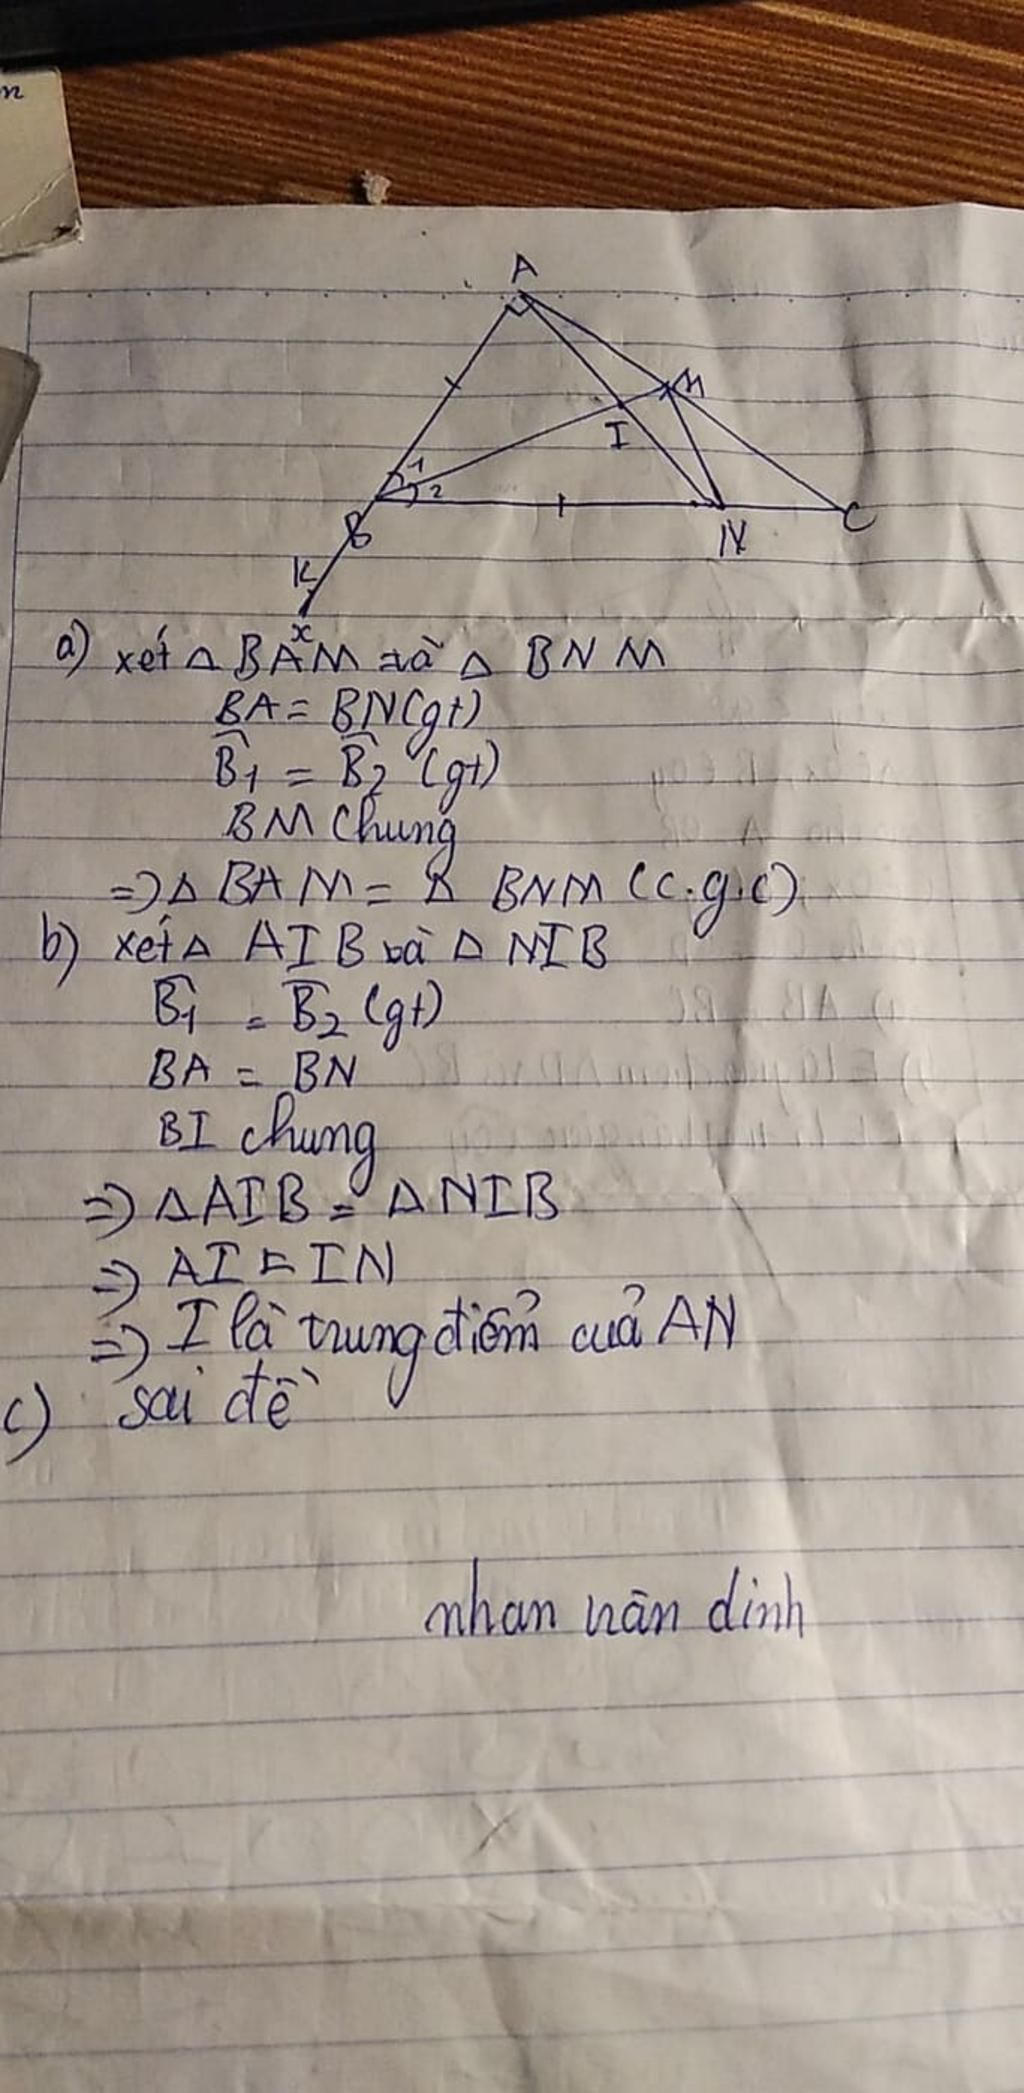 n
A
M
I
1
2
B
N
C
K
x
a) xét △ BAM và △ BNM
BA = BN (gt)
B̂1 = B̂2 (gt)
BM chung
=> △ BAM = △ BNM (c.g.c)
b) xét △ AIB và △ NIB
B̂1 = B̂2 (gt)
BA = BN
BI chung
=> △AIB = △NIB
=> AI = IN
=> I là trung điểm cuả AN
c) sai đề
nhan văn dinh